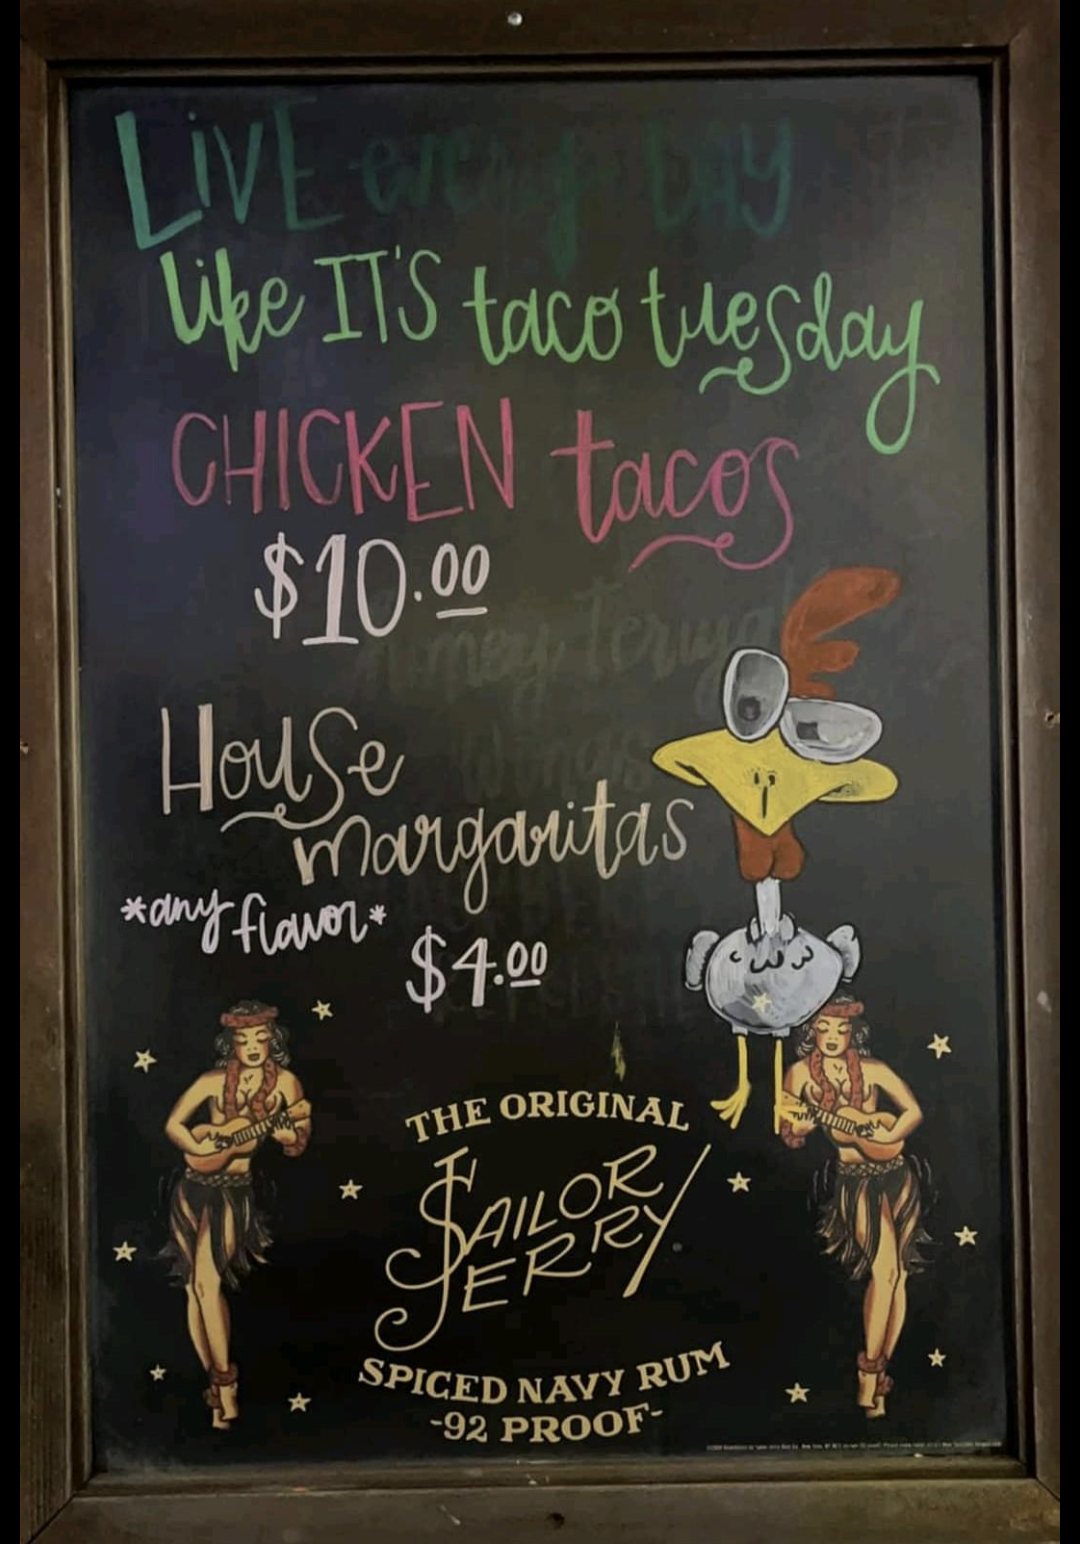 LiVE every DAY
like IT'S taco tuesday
CHICKEN tacos
$10.00
House
margaritas
*any flavor*
$4.00
THE ORIGINAL
SAILOR
JERRY
SPICED NAVY RUM
-92 PROOF-